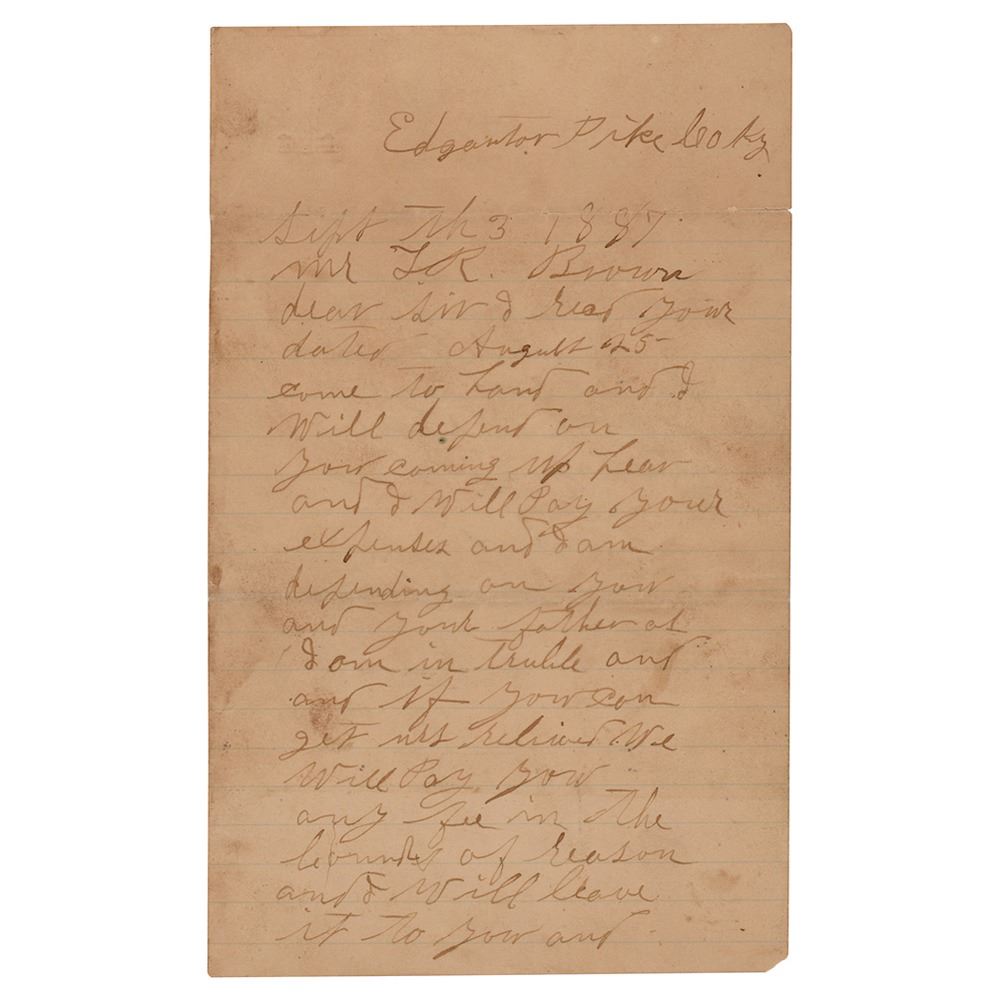 Edgarton Pike Co Ky
Sept th 3 1887
Mr T R. Brown
dear Sir I recd your
dated August 25
come to hand and I
Will depend on
you coming up hear
and I Will Pay your
expenses and I am
depending on you
and your father as
I am in truble and
and if you can
get us relieved We
Will Pay you
any fee in the
bounds of reason
and I Will leave
it to you and